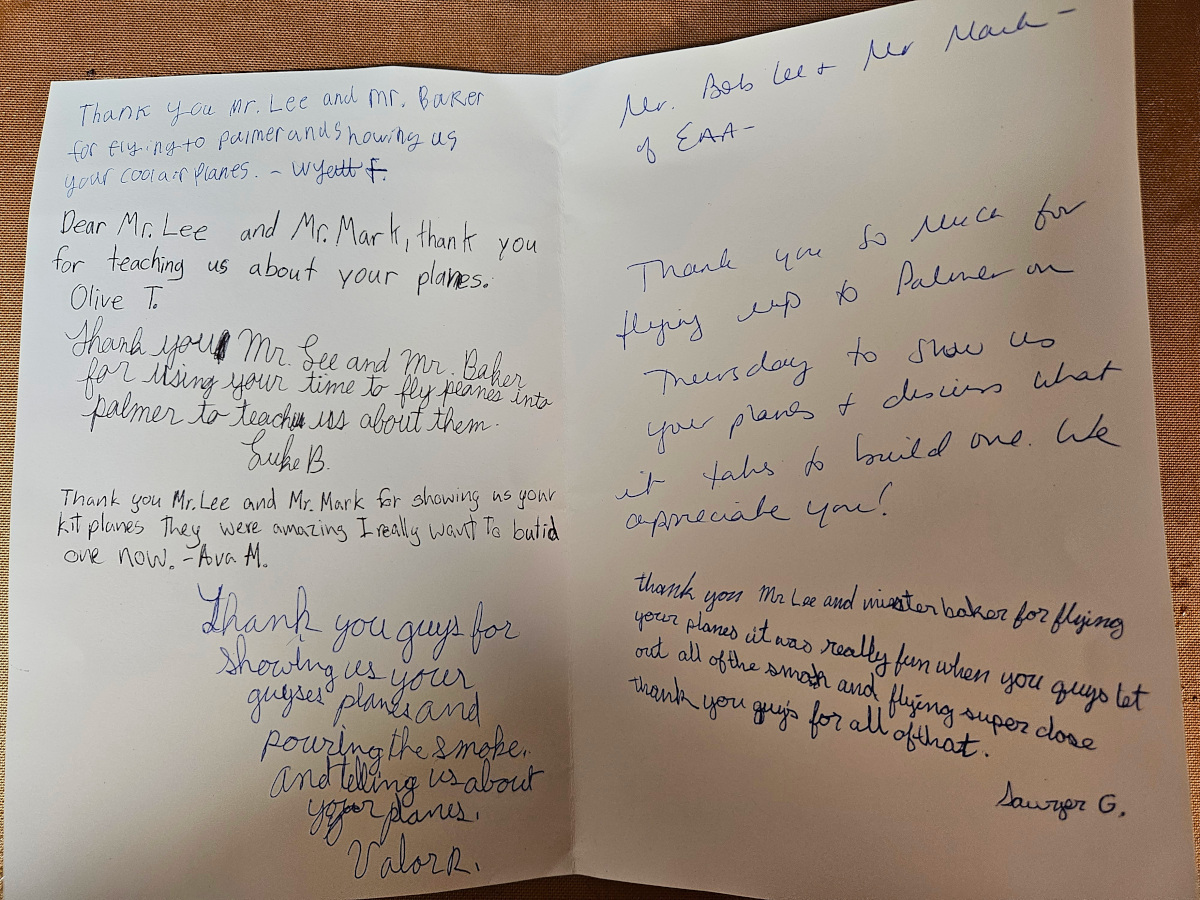 Thank you Mr. Lee and Mr. Baker
for flying to palmer and showing us
your cool air planes. - Wyett F.
Dear Mr. Lee and Mr. Mark, thank you
for teaching us about your planes.
Olive T.
Thank you Mr. Lee and Mr. Baker
for using your time to fly planes into
palmer to teach us about them.
Luke B.
Thank you Mr. Lee and Mr. Mark for showing us your
kit planes they were amazing I really want to butid
one now. - Ava M.
Thank you guys for
showing us your
guyses planes and
pouring the smoke.
and telling us about
your planes.
Valor R.
Mr. Bob Lee + Mr Mark -
of EAA -
Thank you so much for
flying up to Palmer on
Thursday to show us
your planes + discuss what
it takes to build one. We
appreciate you!
thank you Mr Lee and mister baker for flying
your planes it was really fun when you guys let
out all of the smoke and flying super close
thank you guys for all of that.
Sawyer G.